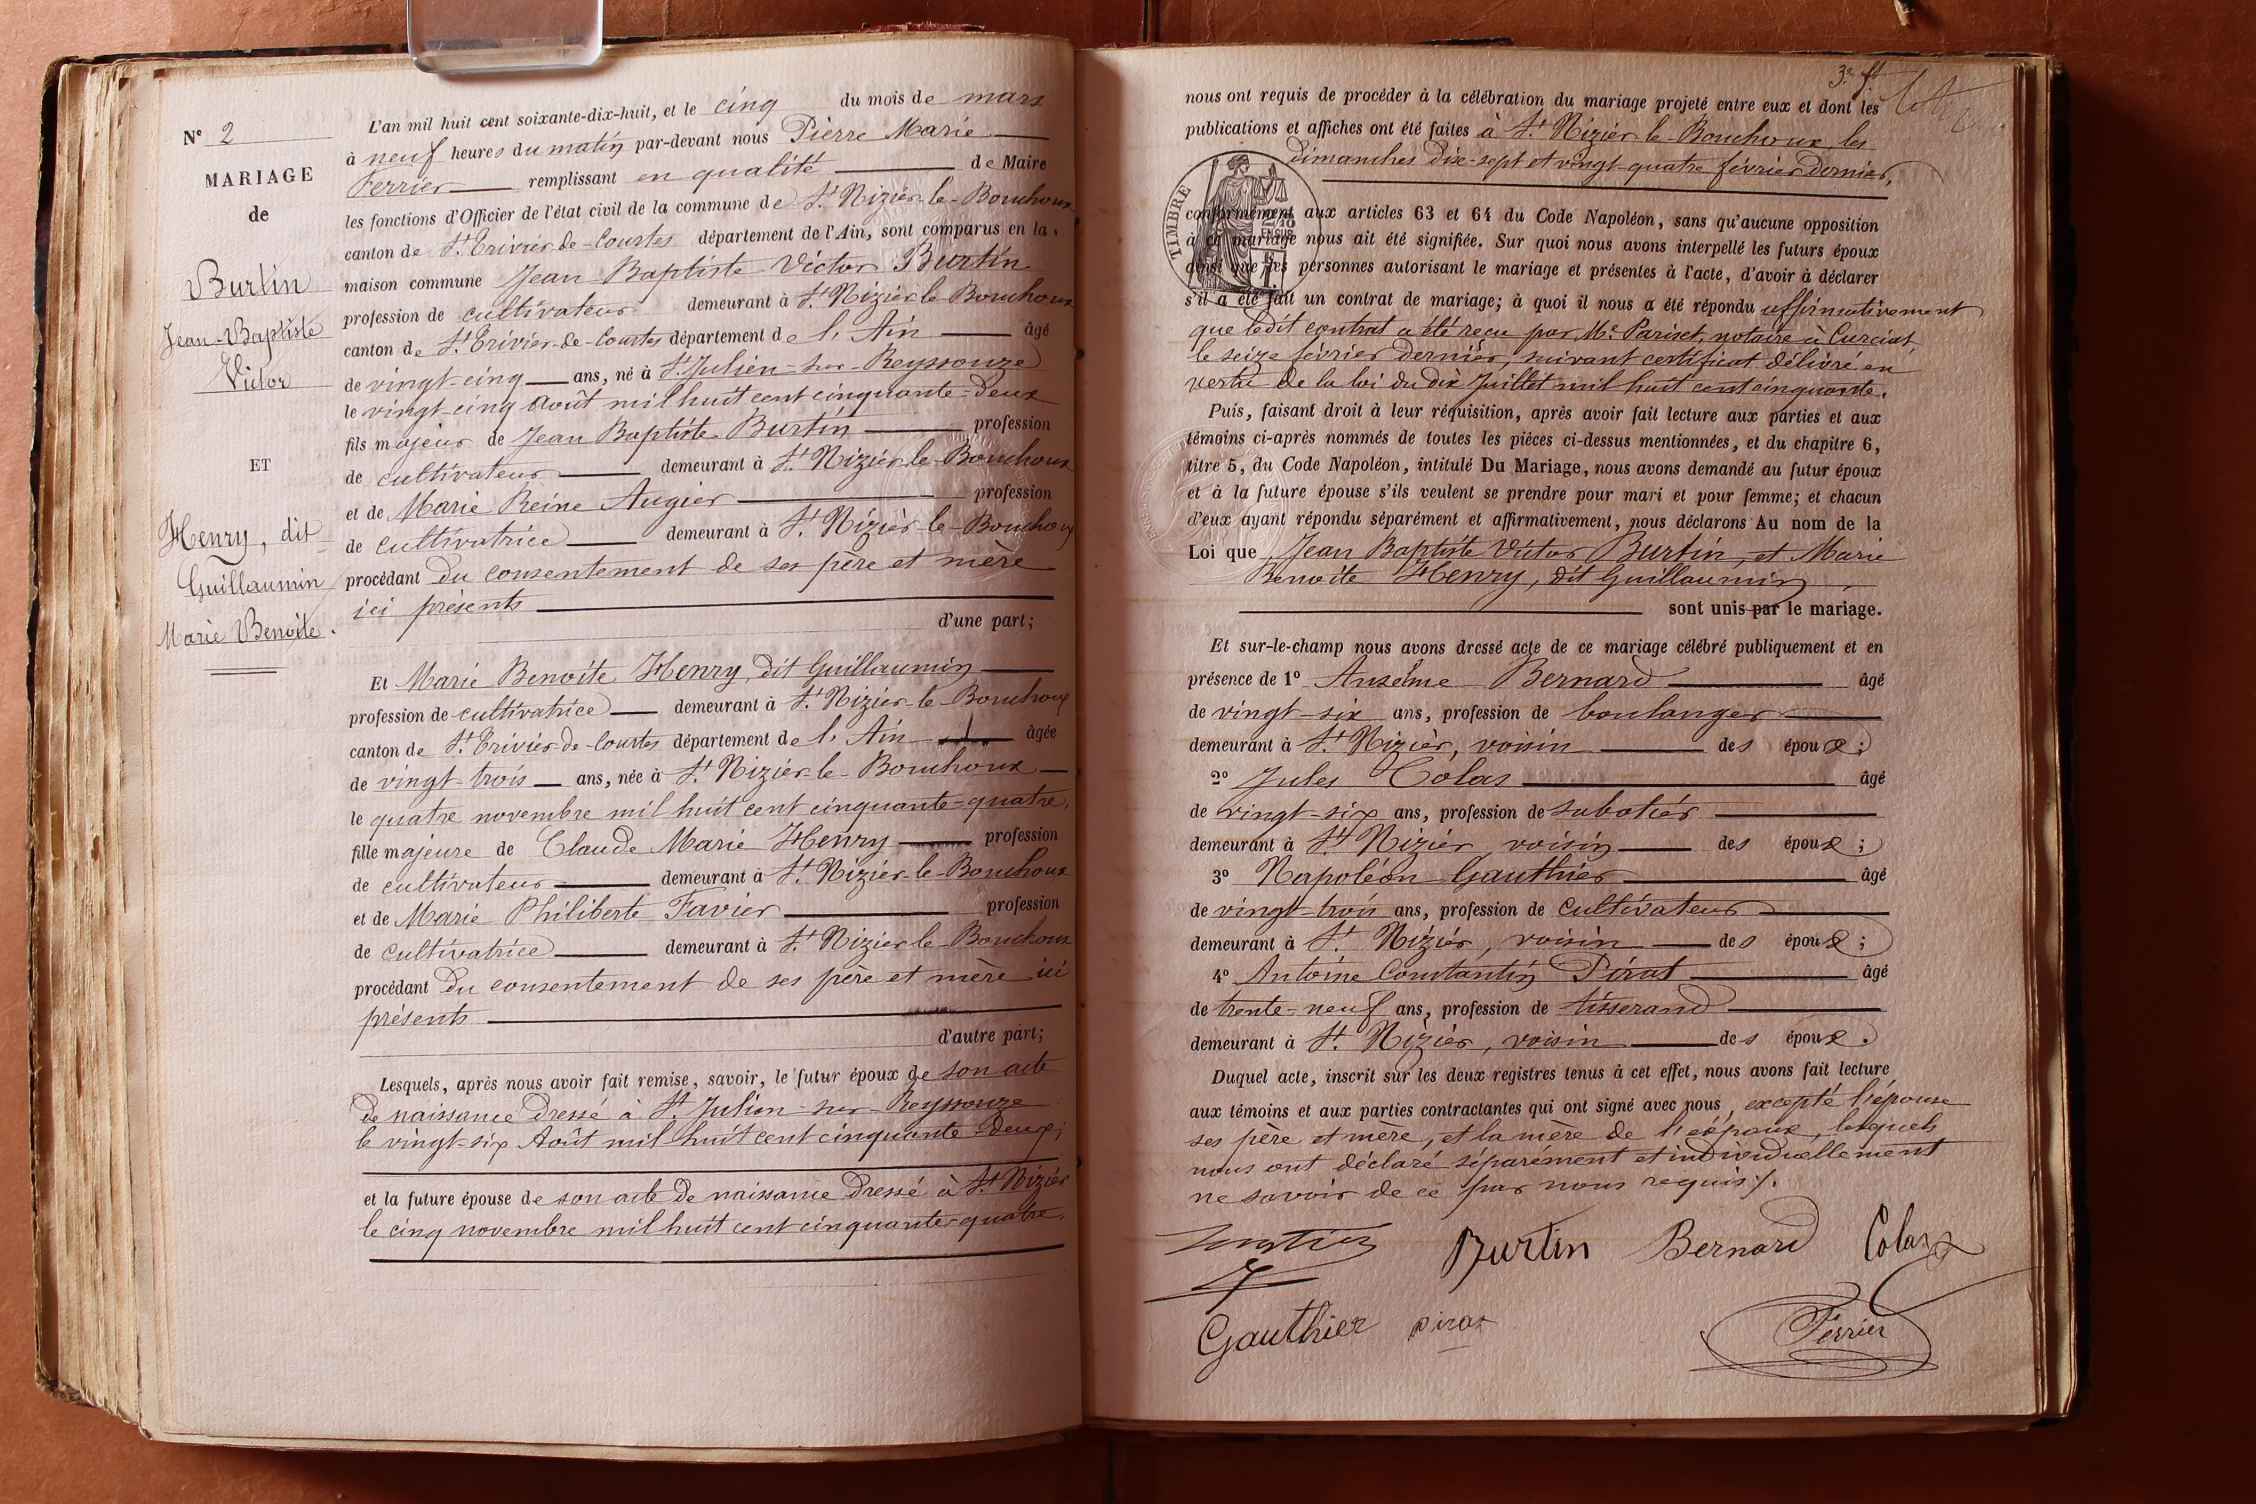 N° 2
MARIAGE
de
Burtin
Jean-Baptiste
Victor
ET
Henry, dit
Guillaumin
Marie Benoite.
L'an mil huit cent soixante-dix-huit, et le cinq du mois de mars
à neuf heures du matin par-devant nous Pierre Marie
Ferrier remplissant en qualité de Maire
les fonctions d'Officier de l'état civil de la commune de St Nizier-le-Bouchoux
canton de St Trivier-de-Courtes département de l'Ain, sont comparus en la
maison commune Jean Baptiste Victor Burtin
profession de cultivateur demeurant à St Nizier-le-Bouchoux
canton de St Trivier-de-Courtes département de l'Ain âgé
de vingt-cinq ans, né à St Julien-sur-Reyssouze
le vingt-cinq Août mil huit cent cinquante-deux
fils majeur de Jean Baptiste Burtin profession
de cultivateur demeurant à St Nizier-le-Bouchoux
et de Marie Reine Augier profession
de cultivatrice demeurant à St Nizier-le-Bouchoux
procédant du consentement de ses père et mère
ici présents
d'une part;
Et Marie Benoite Henry, dit Guillaumin
profession de cultivatrice demeurant à St Nizier-le-Bouchoux
canton de St Trivier-de-Courtes département de l'Ain âgée
de vingt-trois ans, née à St Nizier-le-Bouchoux
le quatre novembre mil huit cent cinquante-quatre,
fille majeure de Claude Marie Henry profession
de cultivateur demeurant à St Nizier-le-Bouchoux
et de Marie Philiberte Favier profession
de cultivatrice demeurant à St Nizier-le-Bouchoux
procédant du consentement de ses père et mère ici
présents
d'autre part;
Lesquels, après nous avoir fait remise, savoir, le futur époux de son acte
de naissance dressé à St Julien-sur-Reyssouze
le vingt-six Août mil huit cent cinquante-deux;
et la future épouse de son acte de naissance dressé à St Nizier
le cinq novembre mil huit cent cinquante-quatre.
3e ft
nous ont requis de procéder à la célébration du mariage projeté entre eux et dont les
publications et affiches ont été faites à St Nizier-le-Bouchoux, les
dimanches dix-sept et vingt-quatre février dernier,
TIMBRE
conformément aux articles 63 et 64 du Code Napoléon, sans qu'aucune opposition
à ce mariage nous ait été signifiée. Sur quoi nous avons interpellé les futurs époux
ainsi que les personnes autorisant le mariage et présentes à l'acte, d'avoir à déclarer
s'il a été fait un contrat de mariage; à quoi il nous a été répondu affirmativement
que ledit contrat a été reçu par Me Pariset, notaire à Curciat,
le seize février dernier, suivant certificat délivré en
vertu de la loi du dix Juillet mil huit cent cinquante.
Puis, faisant droit à leur réquisition, après avoir fait lecture aux parties et aux
témoins ci-après nommés de toutes les pièces ci-dessus mentionnées, et du chapitre 6,
titre 5, du Code Napoléon, intitulé Du Mariage, nous avons demandé au futur époux
et à la future épouse s'ils veulent se prendre pour mari et pour femme; et chacun
d'eux ayant répondu séparément et affirmativement, nous déclarons Au nom de la
Loi que Jean Baptiste Victor Burtin, et Marie
Benoite Henry, dit Guillaumin,
sont unis par le mariage.
Et sur-le-champ nous avons dressé acte de ce mariage célébré publiquement et en
présence de 1° Anselme Bernard âgé
de vingt-six ans, profession de boulanger
demeurant à St Nizier, voisin des époux;
2° Jules Colas âgé
de vingt-six ans, profession de sabotier
demeurant à St Nizier, voisin des époux;
3° Napoléon Gauthier âgé
de vingt-trois ans, profession de cultivateur
demeurant à St Nizier, voisin des époux;
4° Antoine Constantin Pirat âgé
de trente-neuf ans, profession de tisserand
demeurant à St Nizier, voisin des époux.
Duquel acte, inscrit sur les deux registres tenus à cet effet, nous avons fait lecture
aux témoins et aux parties contractantes qui ont signé avec nous, excepté l'épouse
ses père et mère, et la mère de l'époux, lesquels
nous ont déclaré séparément et individuellement
ne savoir de ce par nous requis.
Burtin Bernard Colas
Gauthier pirat Ferrier